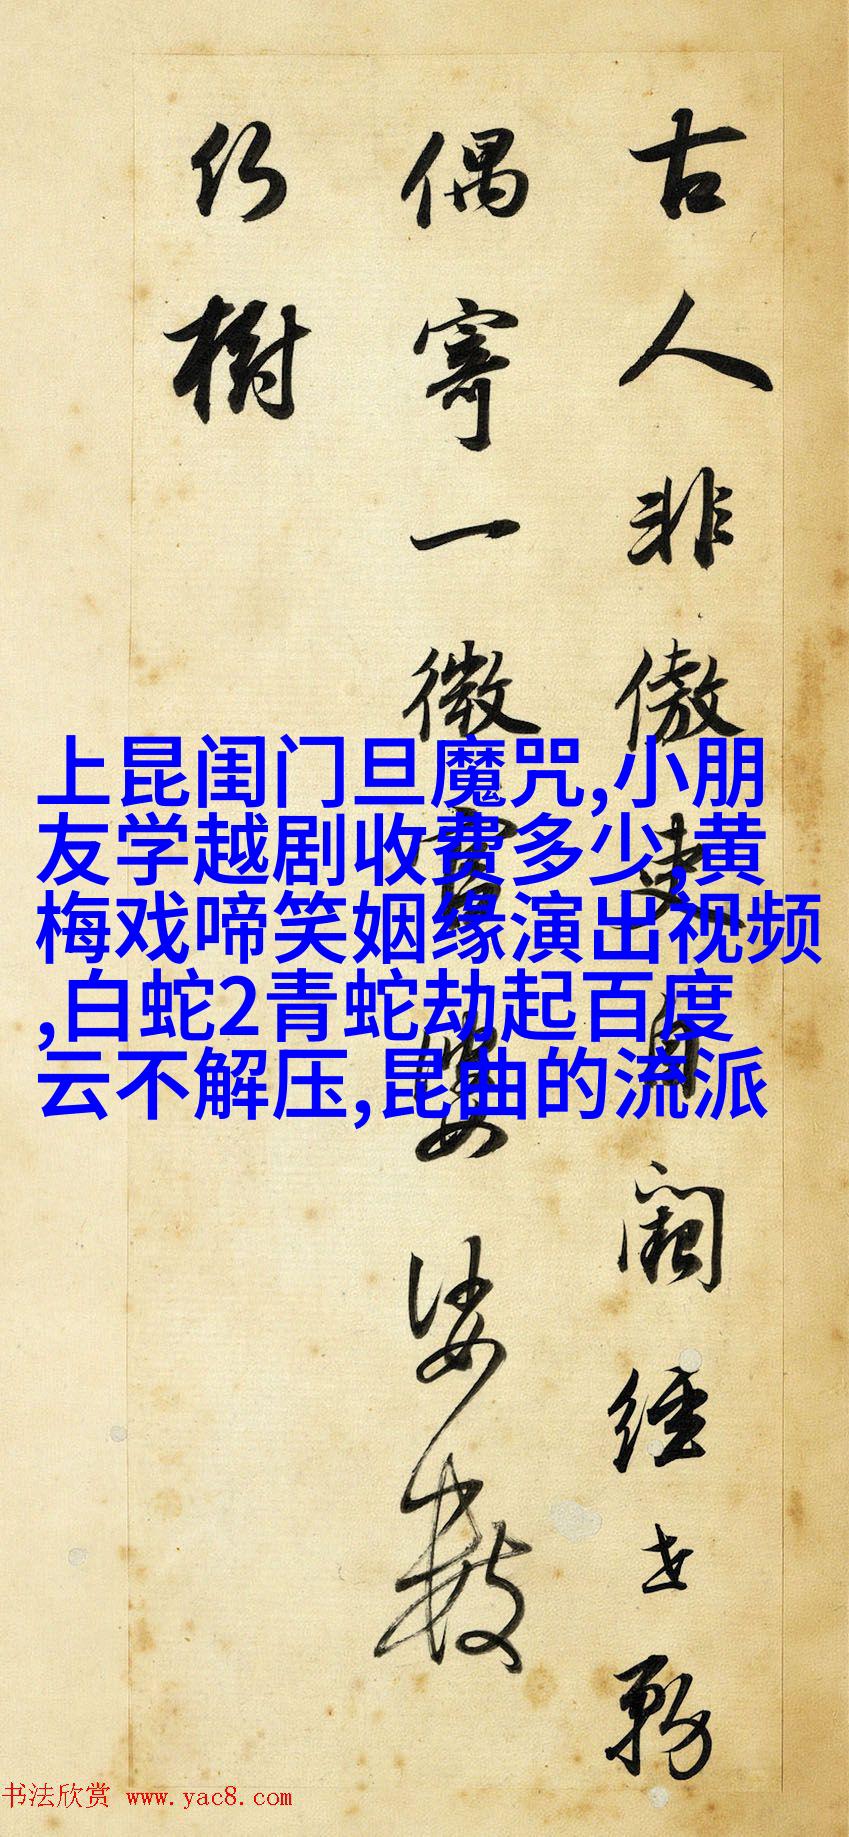 古人非傲吏自闕經世務
偶寄一微官婆娑數
樹
上昆闺门旦魔咒,小朋
友学越剧收费多少,黄
梅戏啼笑姻缘演出视频
,白蛇2青蛇劫起百度
云不解压,昆曲的流派
书法欣赏 www.yac8.com